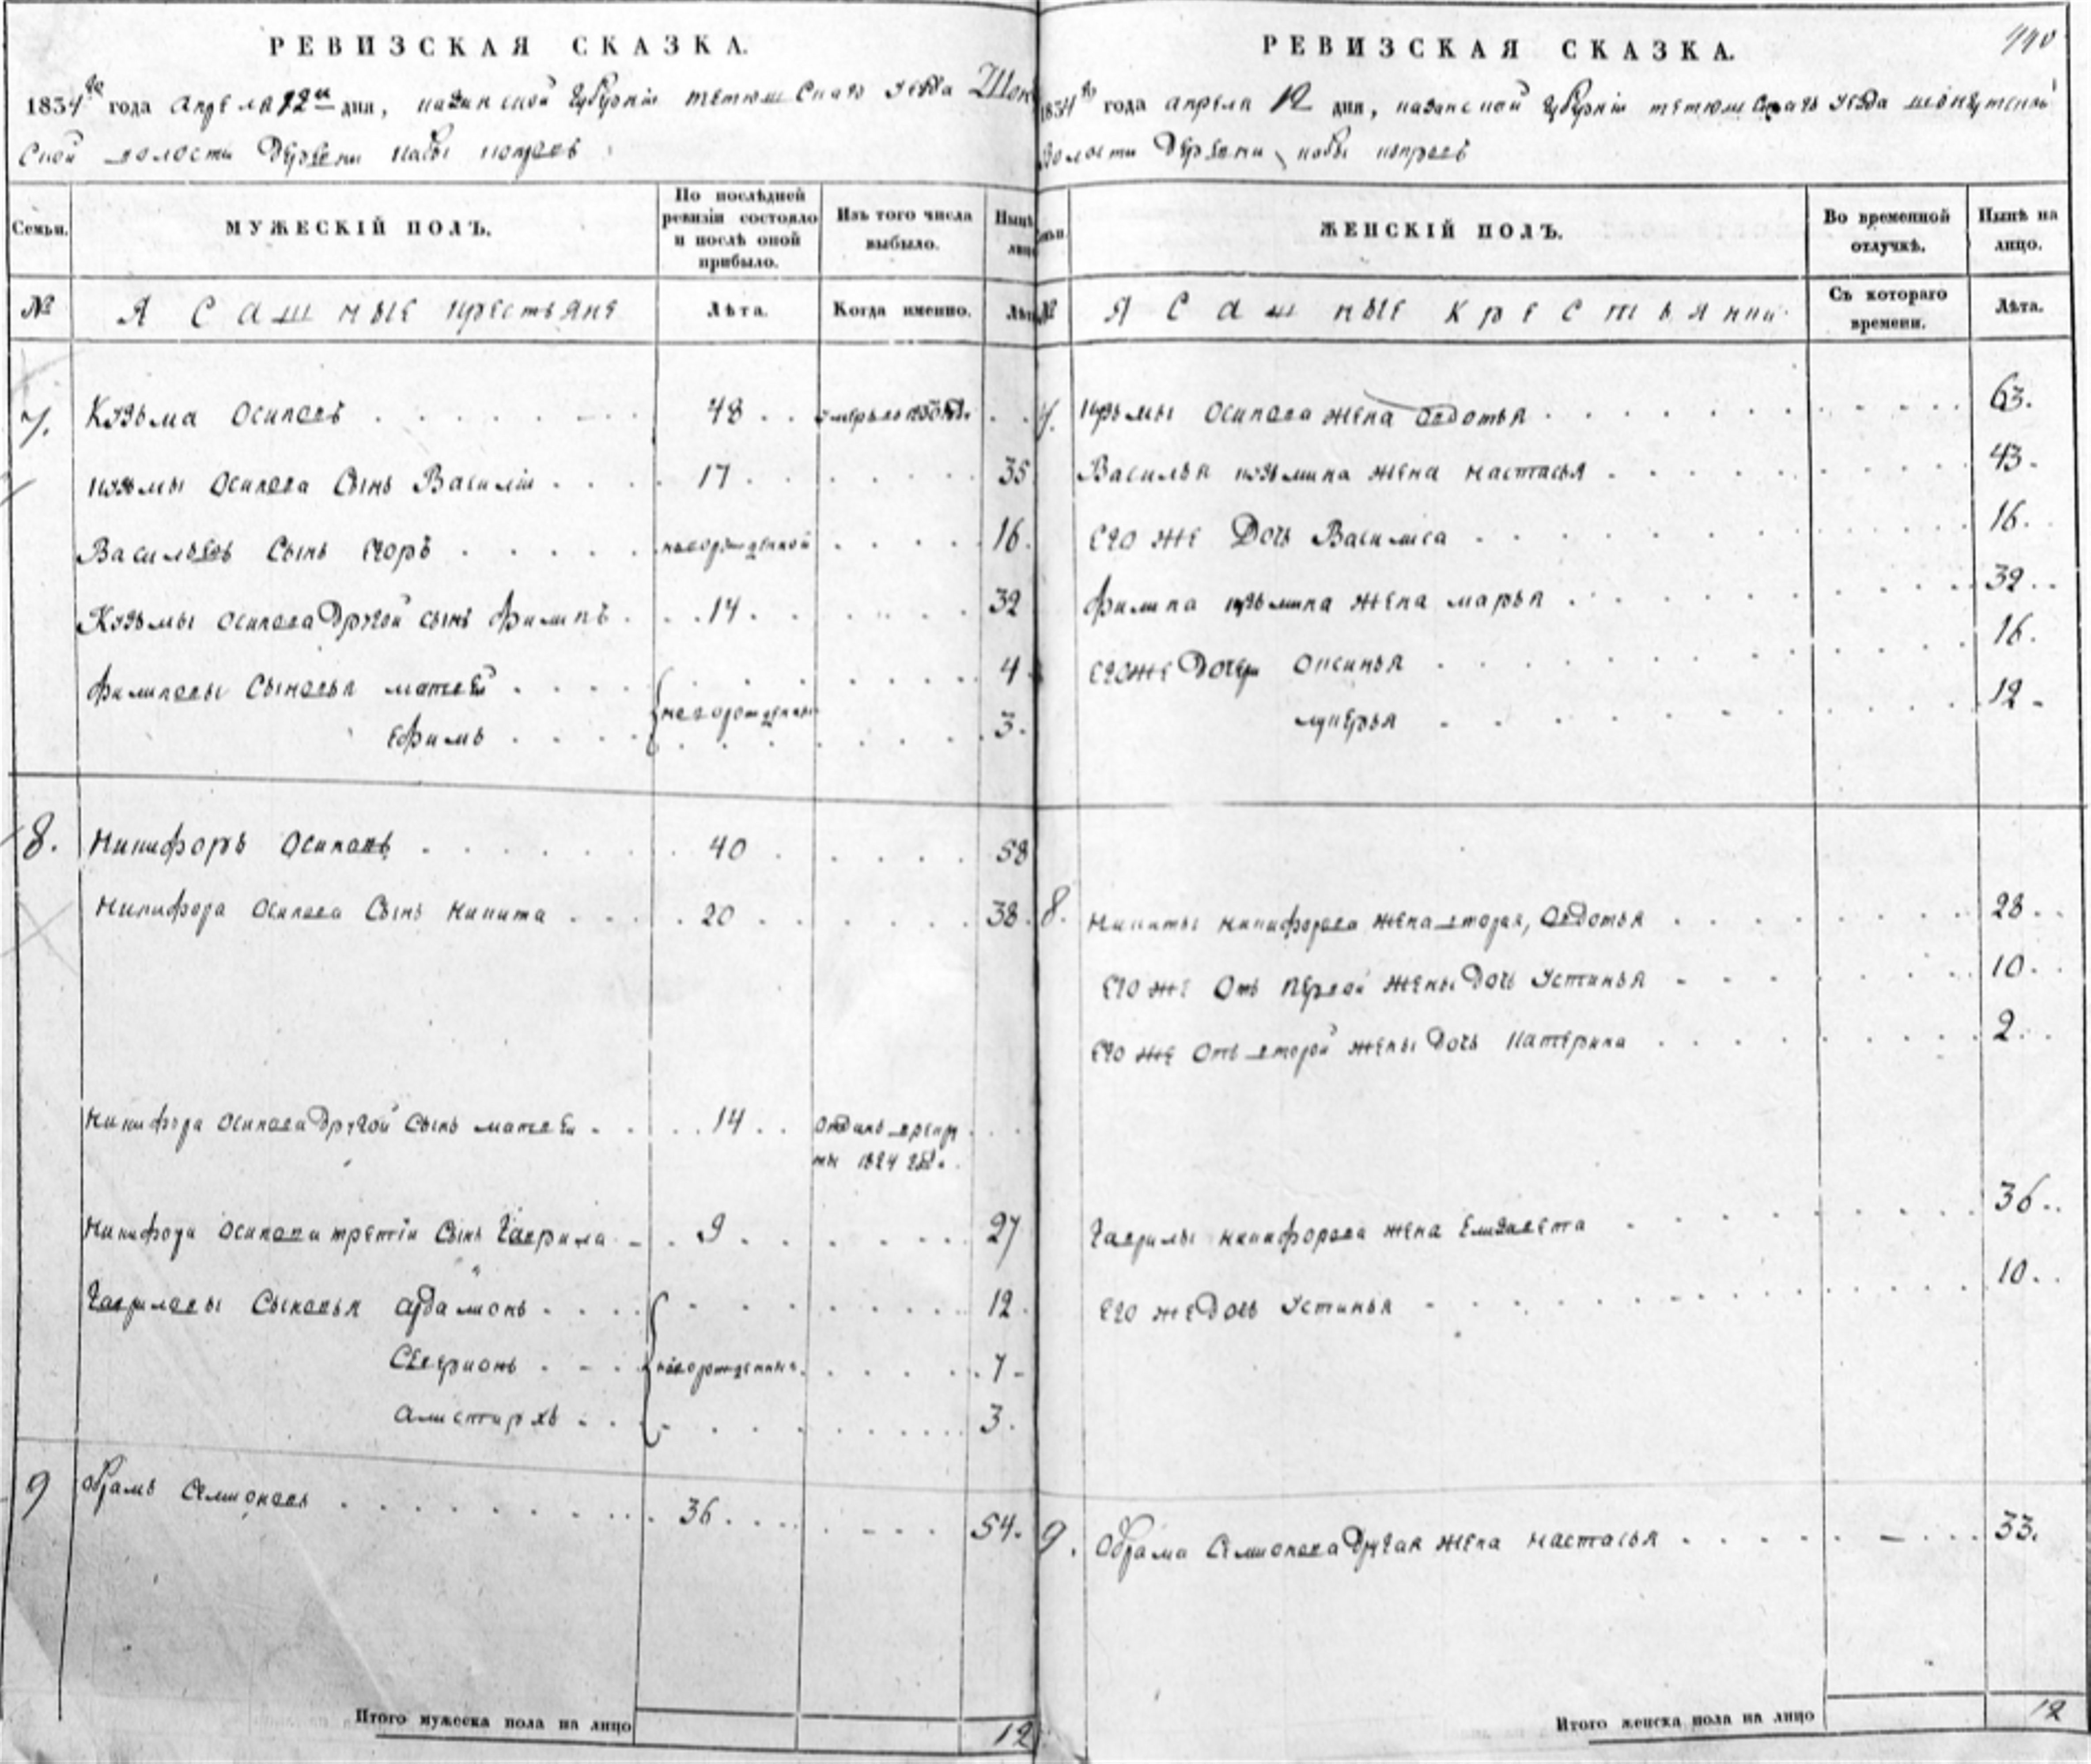 РЕВИЗСКАЯ СКАЗКА.
1834го года апреля 12го дня, казанской губернiи тетюшскаго уезда Шон
ской волости деревни
Семьи. МУЖЕСКIЙ ПОЛЪ. По послѣдней ревизiи состояло и послѣ оной прибыло. Изъ того числа выбыло. Нынѣ лицо
№ Ясашные крестьяне Лѣта. Когда именно. Лѣт
7. Кузьма Осиповъ 48 умеръ
Кузьмы Осипова сынъ Василiи 17 35
Васильевъ сынъ Егоръ новорожденной 16
Кузьмы Осипова другой сынъ Филипъ 14 32
Филиповы сыновья матвей 4
новорожденны
Ефимъ 3
8. Никифоръ Осиповъ 40 58
Никифора Осипова сынъ Никита 20 38
Никифора Осипова другой сынъ матвеи 14 отданъ врекру
ты 1824 год.
Никифора Осипова третiи сынъ Гаврила 9 27
Гавриловы сыновья ардамонъ 12
Севирионъ новорожденны 7
алистархъ 3
9 Обрамъ Семионовъ 36 54.
Итого мужеска пола на лицо 12
РЕВИЗСКАЯ СКАЗКА. 440
1834го года апреля 12 дня, казанской губернiи тетюшскаго уезда
волости деревни
Семьи. ЖЕНСКIЙ ПОЛЪ. Во временной отлучкѣ. Нынѣ на лицо.
№ Ясашные крестьянки Съ котораго времени. Лѣта.
7. Кузьмы Осипова жена овдотья 63.
Василья Кузьмина жена настасья 43.
Его же дочь Василиса 16.
Филипа Кузьмина жена марья 32
Его же дочери Оксинья 16.
лукерья 12
8. Никиты Никифорова жена вторая, Овдотья 28
Его же отъ первой жены дочь Устинья 10.
Его же отъ второй жены дочь Катерина 2.
Гаврилы Никифорова жена Елизавета 36
Его же дочь Устинья 10.
9. Обрама Семионова другая жена настасья 33.
Итого женска пола на лицо 12